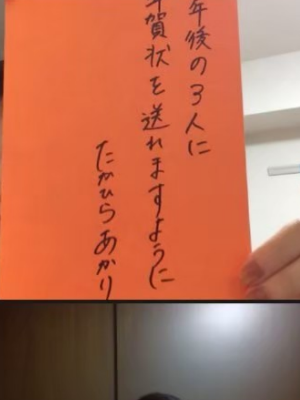 年後の3人に
年賀状を送れますように
たかひらあかり